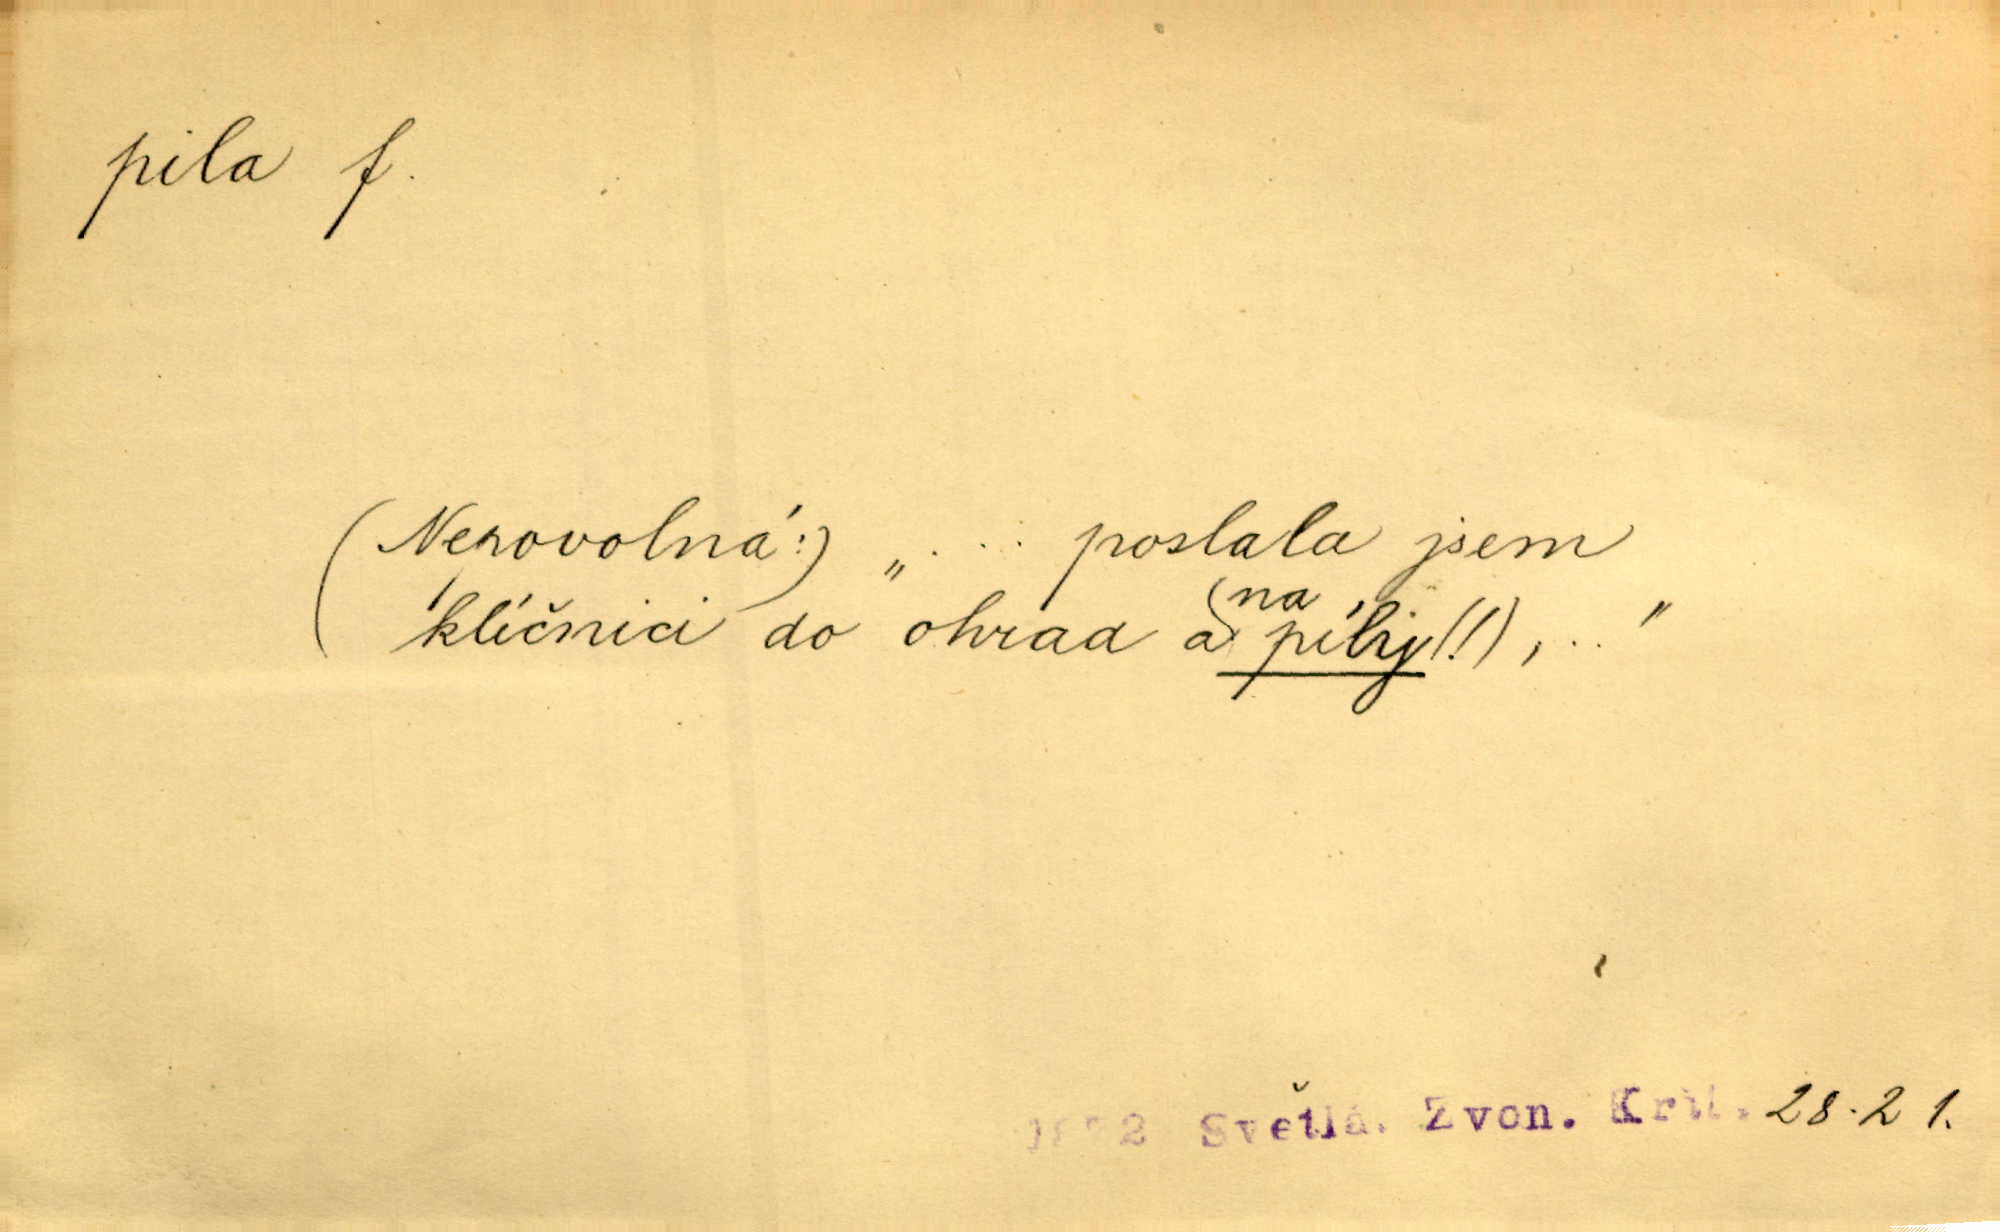 pila f.
(Nepovolná:) „.... poslala jsem
klíčnici do ohrad a (na
píly (!), .."
1872 Světlá. Zvon. Král. 28.21.